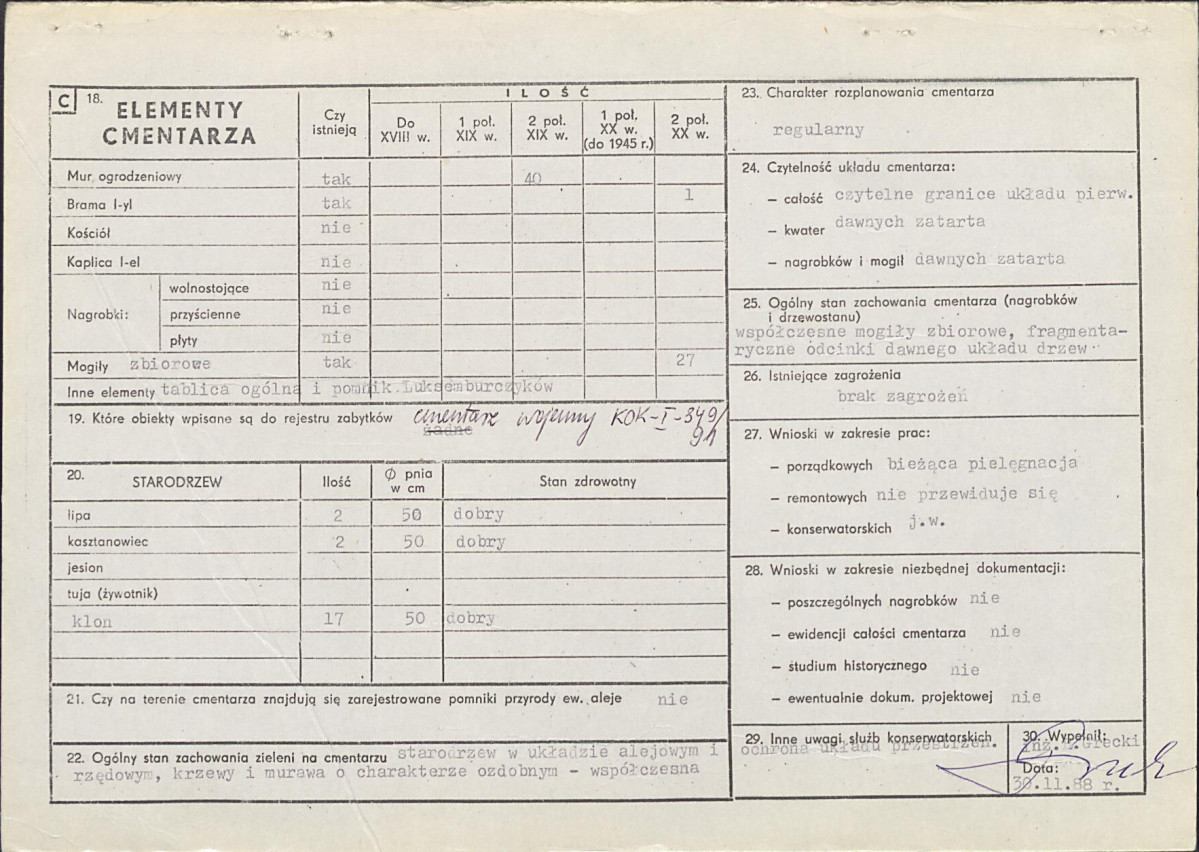 C 18. ELEMENTY CMENTARZA
Czy istnieją
ILOŚĆ
Do XVIII w.
1 poł. XIX w.
2 poł. XIX w.
1 poł. XX w. (do 1945 r.)
2 poł. XX w.
Mur ogrodzeniowy tak 40
Brama l-yl tak 1
Kościół nie
Kaplica l-el nie
Nagrobki: wolnostojące nie
przyścienne nie
płyty nie
Mogiły zbiorowe tak 27
Inne elementy tablica ogólna i pomnik Luksemburczyków
19. Które obiekty wpisane są do rejestru zabytków cmentarz wojenny KOK-I-349/
żadne 91
20. STARODRZEW Ilość Ø pnia w cm Stan zdrowotny
lipa 2 50 dobry
kasztanowiec 2 50 dobry
jesion
tuja (żywotnik)
klon 17 50 dobry
21. Czy na terenie cmentarza znajdują się zarejestrowane pomniki przyrody ew. aleje nie
22. Ogólny stan zachowania zieleni na cmentarzu starodrzew w układzie alejowym i
rzędowym, krzewy i murawa o charakterze ozdobnym - współczesna
23. Charakter rozplanowania cmentarza
regularny
24. Czytelność układu cmentarza:
– całość czytelne granice układu pierw.
– kwater dawnych zatarta
– nagrobków i mogił dawnych zatarta
25. Ogólny stan zachowania cmentarza (nagrobków
i drzewostanu)
współczesne mogiły zbiorowe, fragmenta-
ryczne odcinki dawnego układu drzew
26. Istniejące zagrożenia
brak zagrożeń
27. Wnioski w zakresie prac:
– porządkowych bieżąca pielęgnacja
– remontowych nie przewiduje się
– konserwatorskich j.w.
28. Wnioski w zakresie niezbędnej dokumentacji:
– poszczególnych nagrobków nie
– ewidencji całości cmentarza nie
– studium historycznego nie
– ewentualnie dokum. projektowej nie
29. Inne uwagi służb konserwatorskich.
ochrona układu przestrzen.
30. Wypełnił:
inż. Z. Grecki
Data:
30.11.88 r.